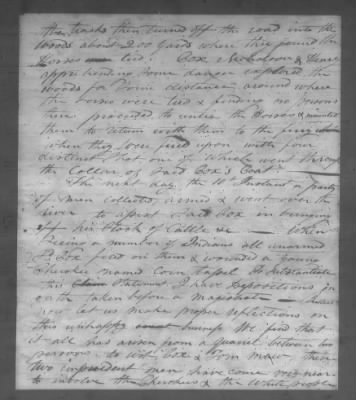 the tracks then turned off the road into the
Woods about 200 yards where they found the
Horses tied. Cox Nicholson & Henry
apprehending some danger explored the
woods for some distance around where
the horses were tied & finding no persons
there proceeded to untie the Horses & mounted
them to return with them to the ferry
when they were fired upon with four
distinct shot one of Which went through
the Collar of said Cox's Coat.
The next day the 11th Instant a party
of men collected armed & went over the
River to assist said Cox in bringing
off his Stock of Cattle &c When
Seeing a number of Indians all unarmed
Cox fired on them & wounded a young
Cherokee named Corn Tassel To Substantiate
this Statement I have depositions on
oath taken before a Magistrate
now let us make proper reflections on
this unhappy We find that
it all has arisen from a Quarrel between two
persons to wit Cox & Tom Maw, these
two imprudent men have come very near
to involve the Cherokees & the White people